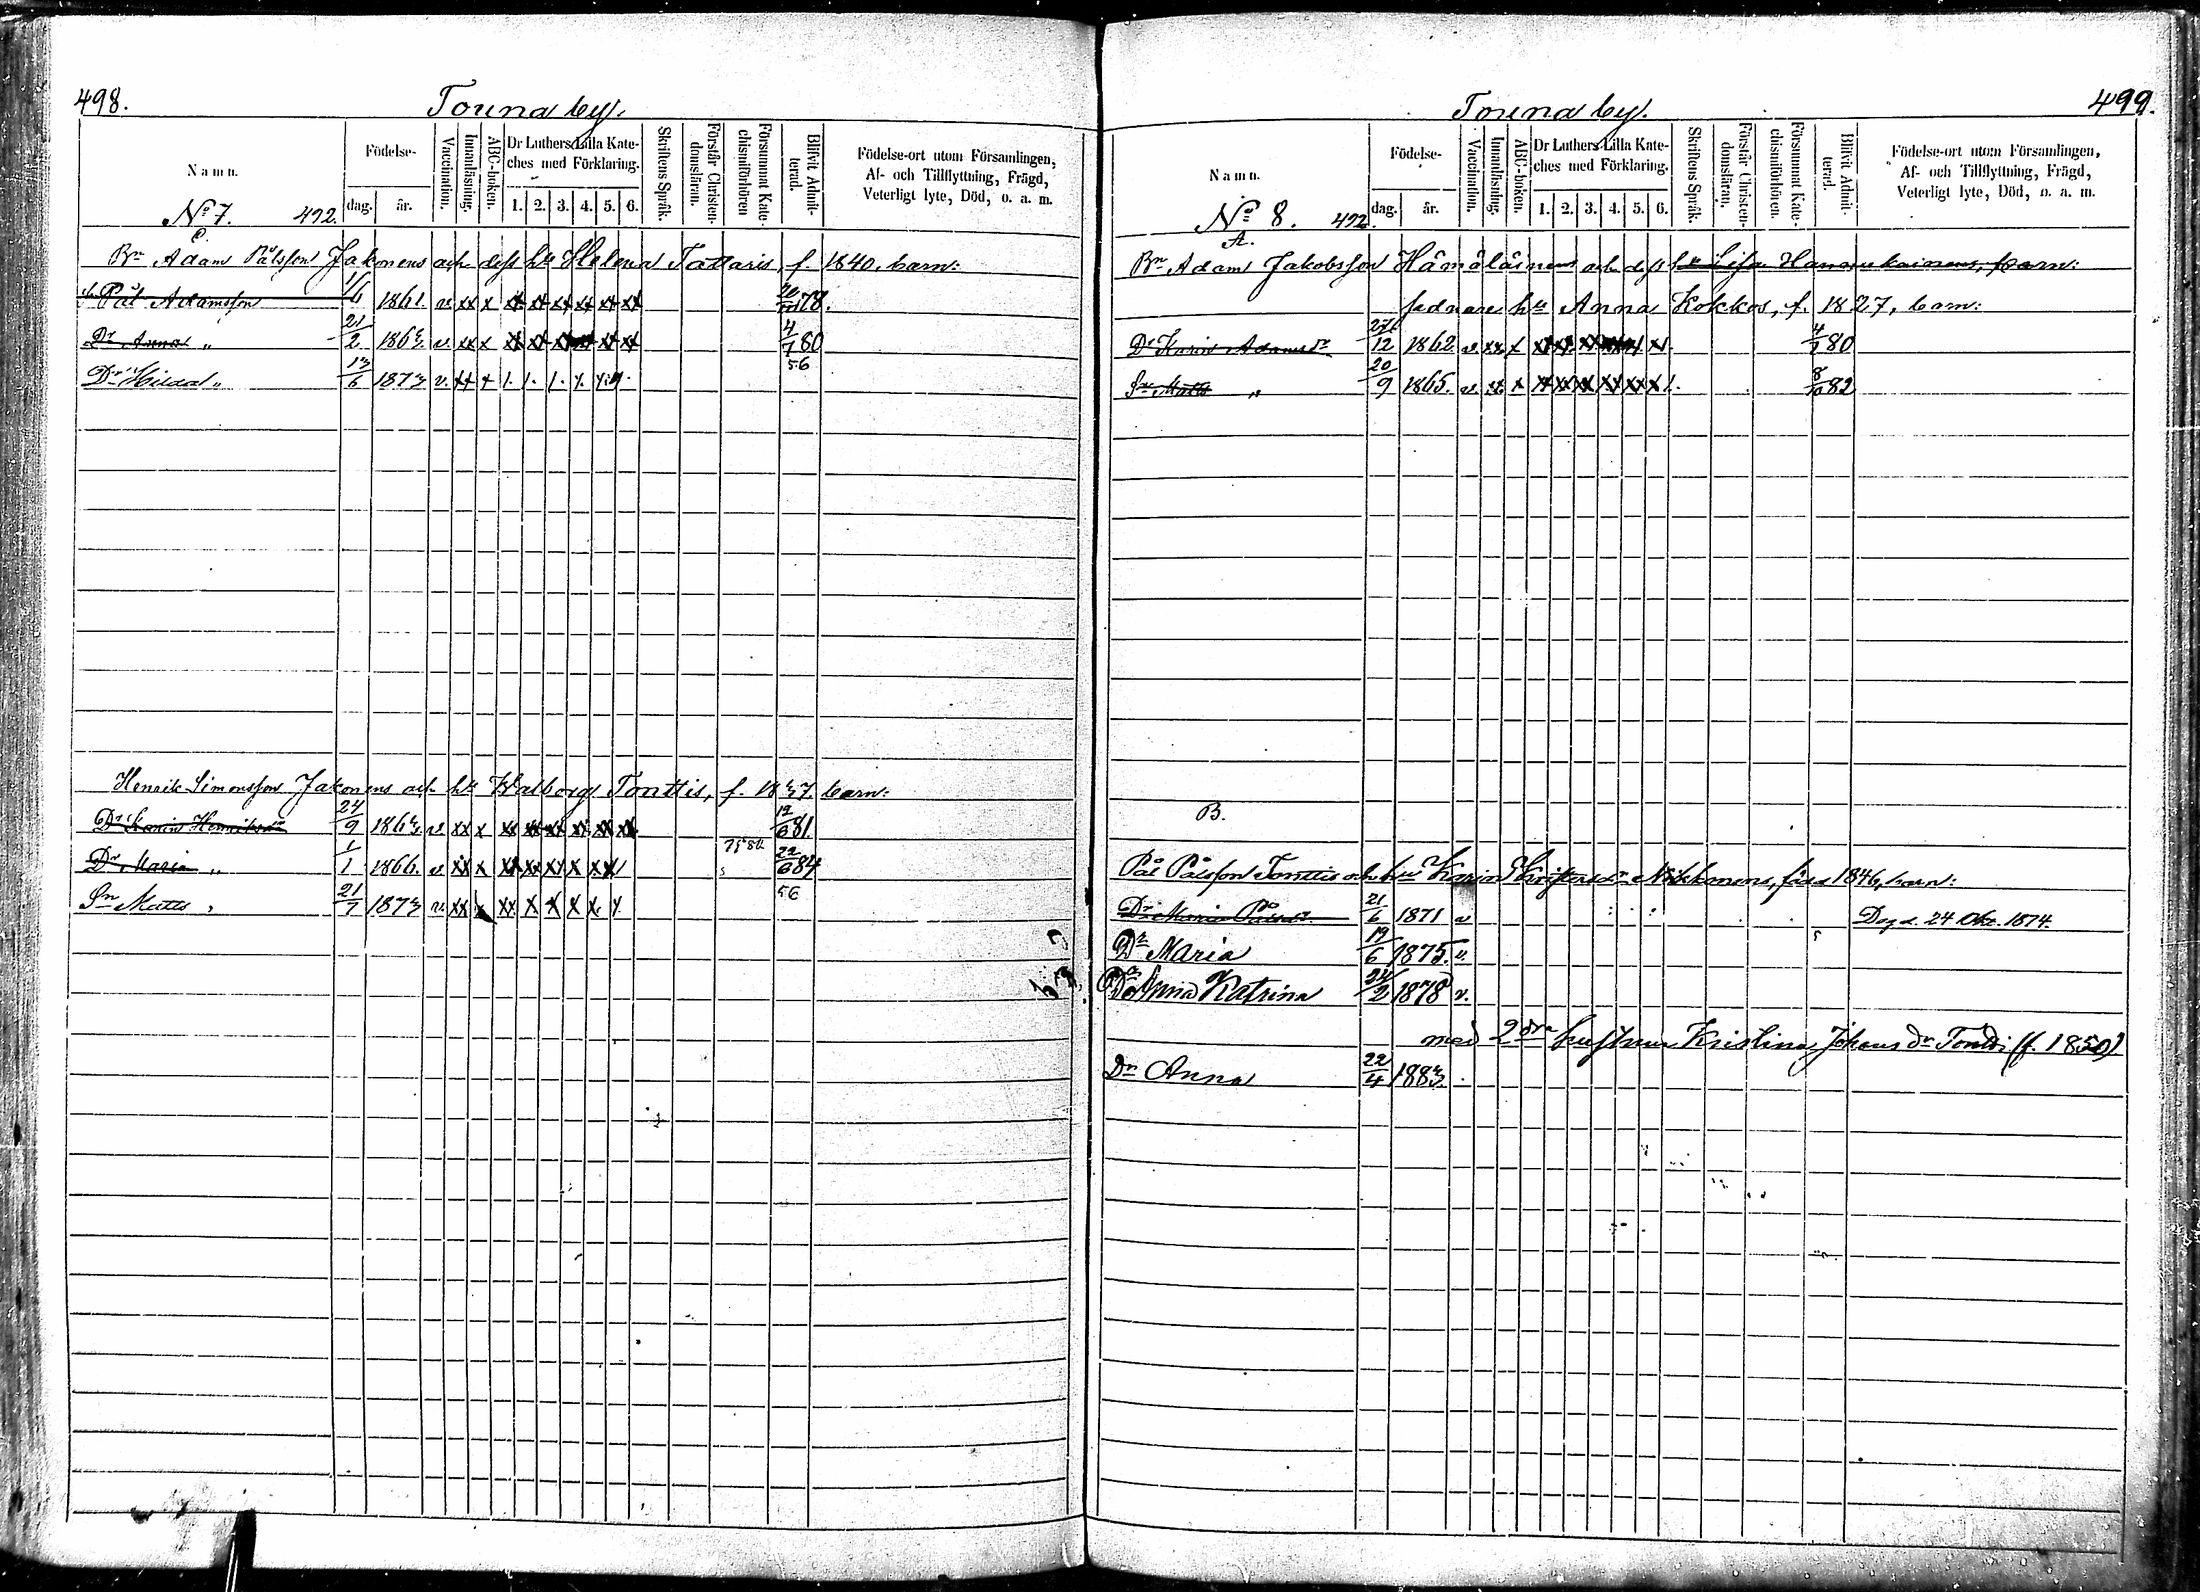 498.
Touna by.
Namn.
Födelse-
dag.
år.
Vaccination.
Innanläsning.
ABC-boken.
Dr Luthers Lilla Kate-
ches med Förklaring.
1. 2. 3. 4. 5. 6.
Skriftens Språk.
Förstår Christen-
domsläran.
Försummat Kate-
chismiförhören
Blifvit Admit-
terad.
Födelse-ort utom Församlingen,
Af- och Tillflyttning, Frägd,
Veterligt lyte, Död, o. a. m.
No 7. 492.
C.
Bn Adam Pålsson Jakonens och dess hu Helena Tattaris, f. 1840, barn:
Pål Adamsson 1/6 1861. v. xx x xx xx xx xx xx xx 78.
Dr Anna „ 21/2 1863. v. xx x xx xx xx xx xx 4/7 80
Dr Hilda „ 13/6 1873 v. xx x 1. 1. 1. 56
Henrik Simonsson Jakonens och hu Walborg Tonttis, f. 1837 barn:
Dr Karin Henriksdr 24/9 1863 v. xx x xx xx xx xx xx xx 12/6 81
Dr Maria „ 1/1 1866. v. xx x xx xx xx x xx 22/6 84
Sn Matts „ 21/7 1873 v. xx x xx x x x x. 56
499.
Touna by.
Namn.
Födelse-
dag.
år.
Vaccination.
Innanläsning.
ABC-boken.
Dr Luthers Lilla Kate-
ches med Förklaring.
1. 2. 3. 4. 5. 6.
Skriftens Språk.
Förstår Christen-
domsläran.
Försummat Kate-
chismiförhören.
Blifvit Admit-
terad.
Födelse-ort utom Församlingen,
Af- och Tillflyttning, Frägd,
Veterligt lyte, Död, o. a. m.
No 8. 492.
A.
Bn Adam Jakobsson Hämäläinens och dess hu Lisa Hannukainens, barn:
sednare hu Anna Kokkos, f. 1827, barn:
Dr Karin Adamsdr 27/12 1862 v. xx. x xx xx xx xx x 4/7 80
Sn Matts „ 20/9 1865. v. xx x xx xx xx xx xx x 82
B.
Pål Pålsson Tonttis och hu Karin Kristersdr Nokkonens, född 1846, barn:
Dr Maria Pålsdr 21/6 1871 v Dog d. 24 Okt. 1874.
Dr Maria 19/6 1875. v.
Dr Anna Katrina 24/2 1878 v.
med 2dra hustrun Kristina Johansdr Tontti (f. 1850)
Dr Anna 22/4 1883.